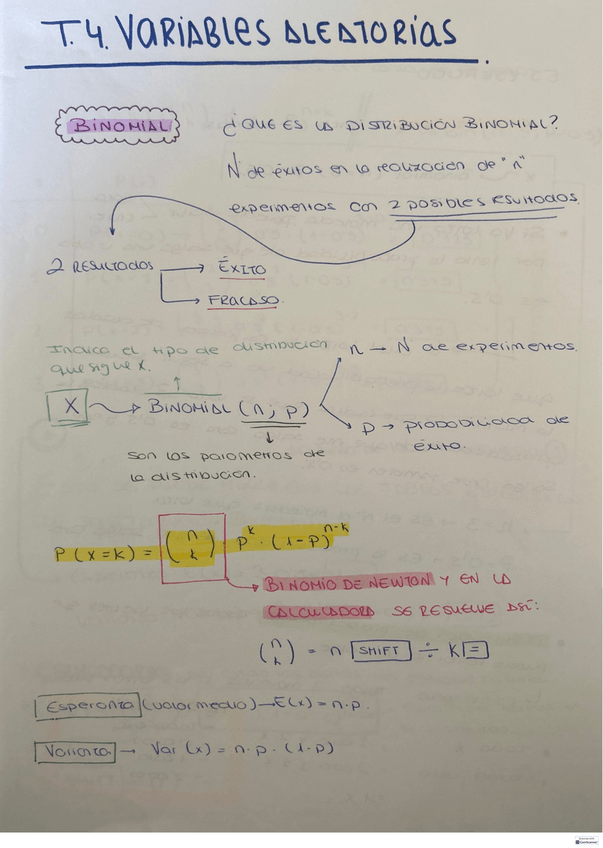 T.4. VARIABLES ALEATORIAS.
BINOMIAL
¿QUE ES LA DISTRIBUCIÓN BINOMIAL?
N de éxitos en la realización de "n"
experimentos con 2 posibles resultados.
2 RESULTADOS → ÉXITO
→ FRACASO.
Indica el tipo de distribución
que sigue X.
X → BINOMIAL (n; p)
n → N de experimentos.
p → probabilidad de
éxito.
Son los parametros de
la distribución.
P(x=k) = (n k) · p^k · (1-p)^n-k
BINOMIO DE NEWTON Y EN LA
CALCULADORA SE RESUELVE ASÍ:
(n k) = n SHIFT ÷ K =
Esperanza (valor medio) → E(x) = n·p.
Varianza → Var (x) = n·p·(1-p)